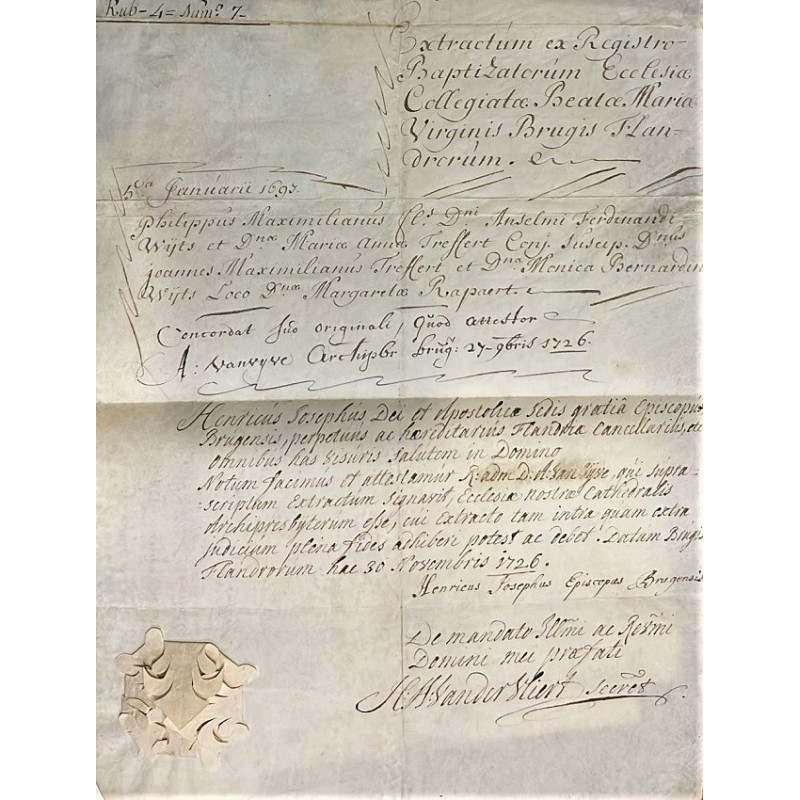 Rub - 4 = Num.º 7 -
Extractum ex Registro
Baptizatorum Ecclesiæ
Collegiatæ Beatæ Mariæ
Virginis Brugis Flan-
drorum.
5.ta Januarii 1693.
Philippus Maximilianus fl.s Dni Anselmi Ferdinandi
Wijts et Dnæ Mariæ Annæ Treffert Conj. Suscep. Dnus
Joannes Maximilianus Treffert et Dna Monica Bernardin
Wijts Loco Dnæ Margaretæ Rapaert.
Concordat suo originali, Quod attestor
A: Vanvyve Archipbr brug: 27-9bris 1726.
Henricus Josephus Dei et Apostolicæ Sedis gratiâ Episcopus
Brugensis, perpetuus ac hæreditarius Flandriæ Cancellarius, etc
omnibus has visuris salutem in Domino
Notum facimus et attestamur R: adm D: A: Van Vyve, qui supra-
-scriptum Extractum signavit, Ecclesiæ nostræ Cathedralis
Archipresbyterum esse, cui extracto tam intra quam extra
judicium plena fides adhiberi potest ac debet. Datum Brugis
Flandrorum hac 30 Novembris 1726.
Henricus Josephus Episcopus Brugensis
De mandato Illmi ac Revmi
Domini mei præfati
Vander Vliert Secret